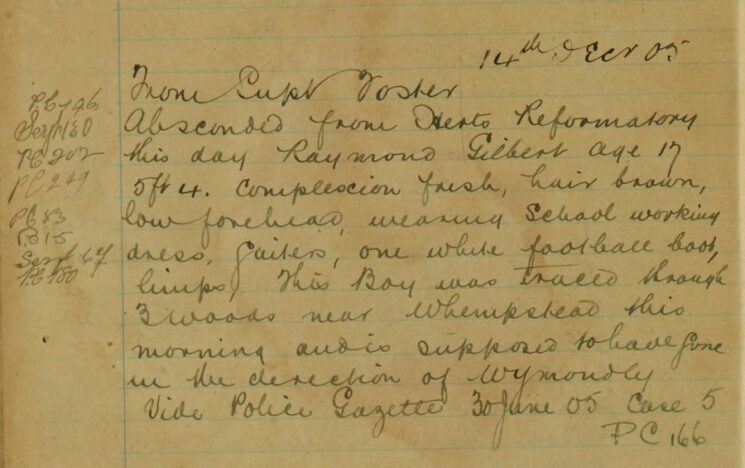 14th Decr 05
From Supt Foster
Absconded from Herts Reformatory
this day Raymond Gilbert age 17
5ft 4. complexcion fresh, hair brown,
low forehead, wearing School working
dress, gaiters, one white football boot,
limps, This Boy was traced through
3 woods near Whempstead this
morning and is supposed to have gone
in the derection of Wymondly
Vide Police Gazette 30 June 05 Case 5
PC 166
Sergt 30
PC 202
PC 249
PC 83
PC 15
Sergt 67
PC 180